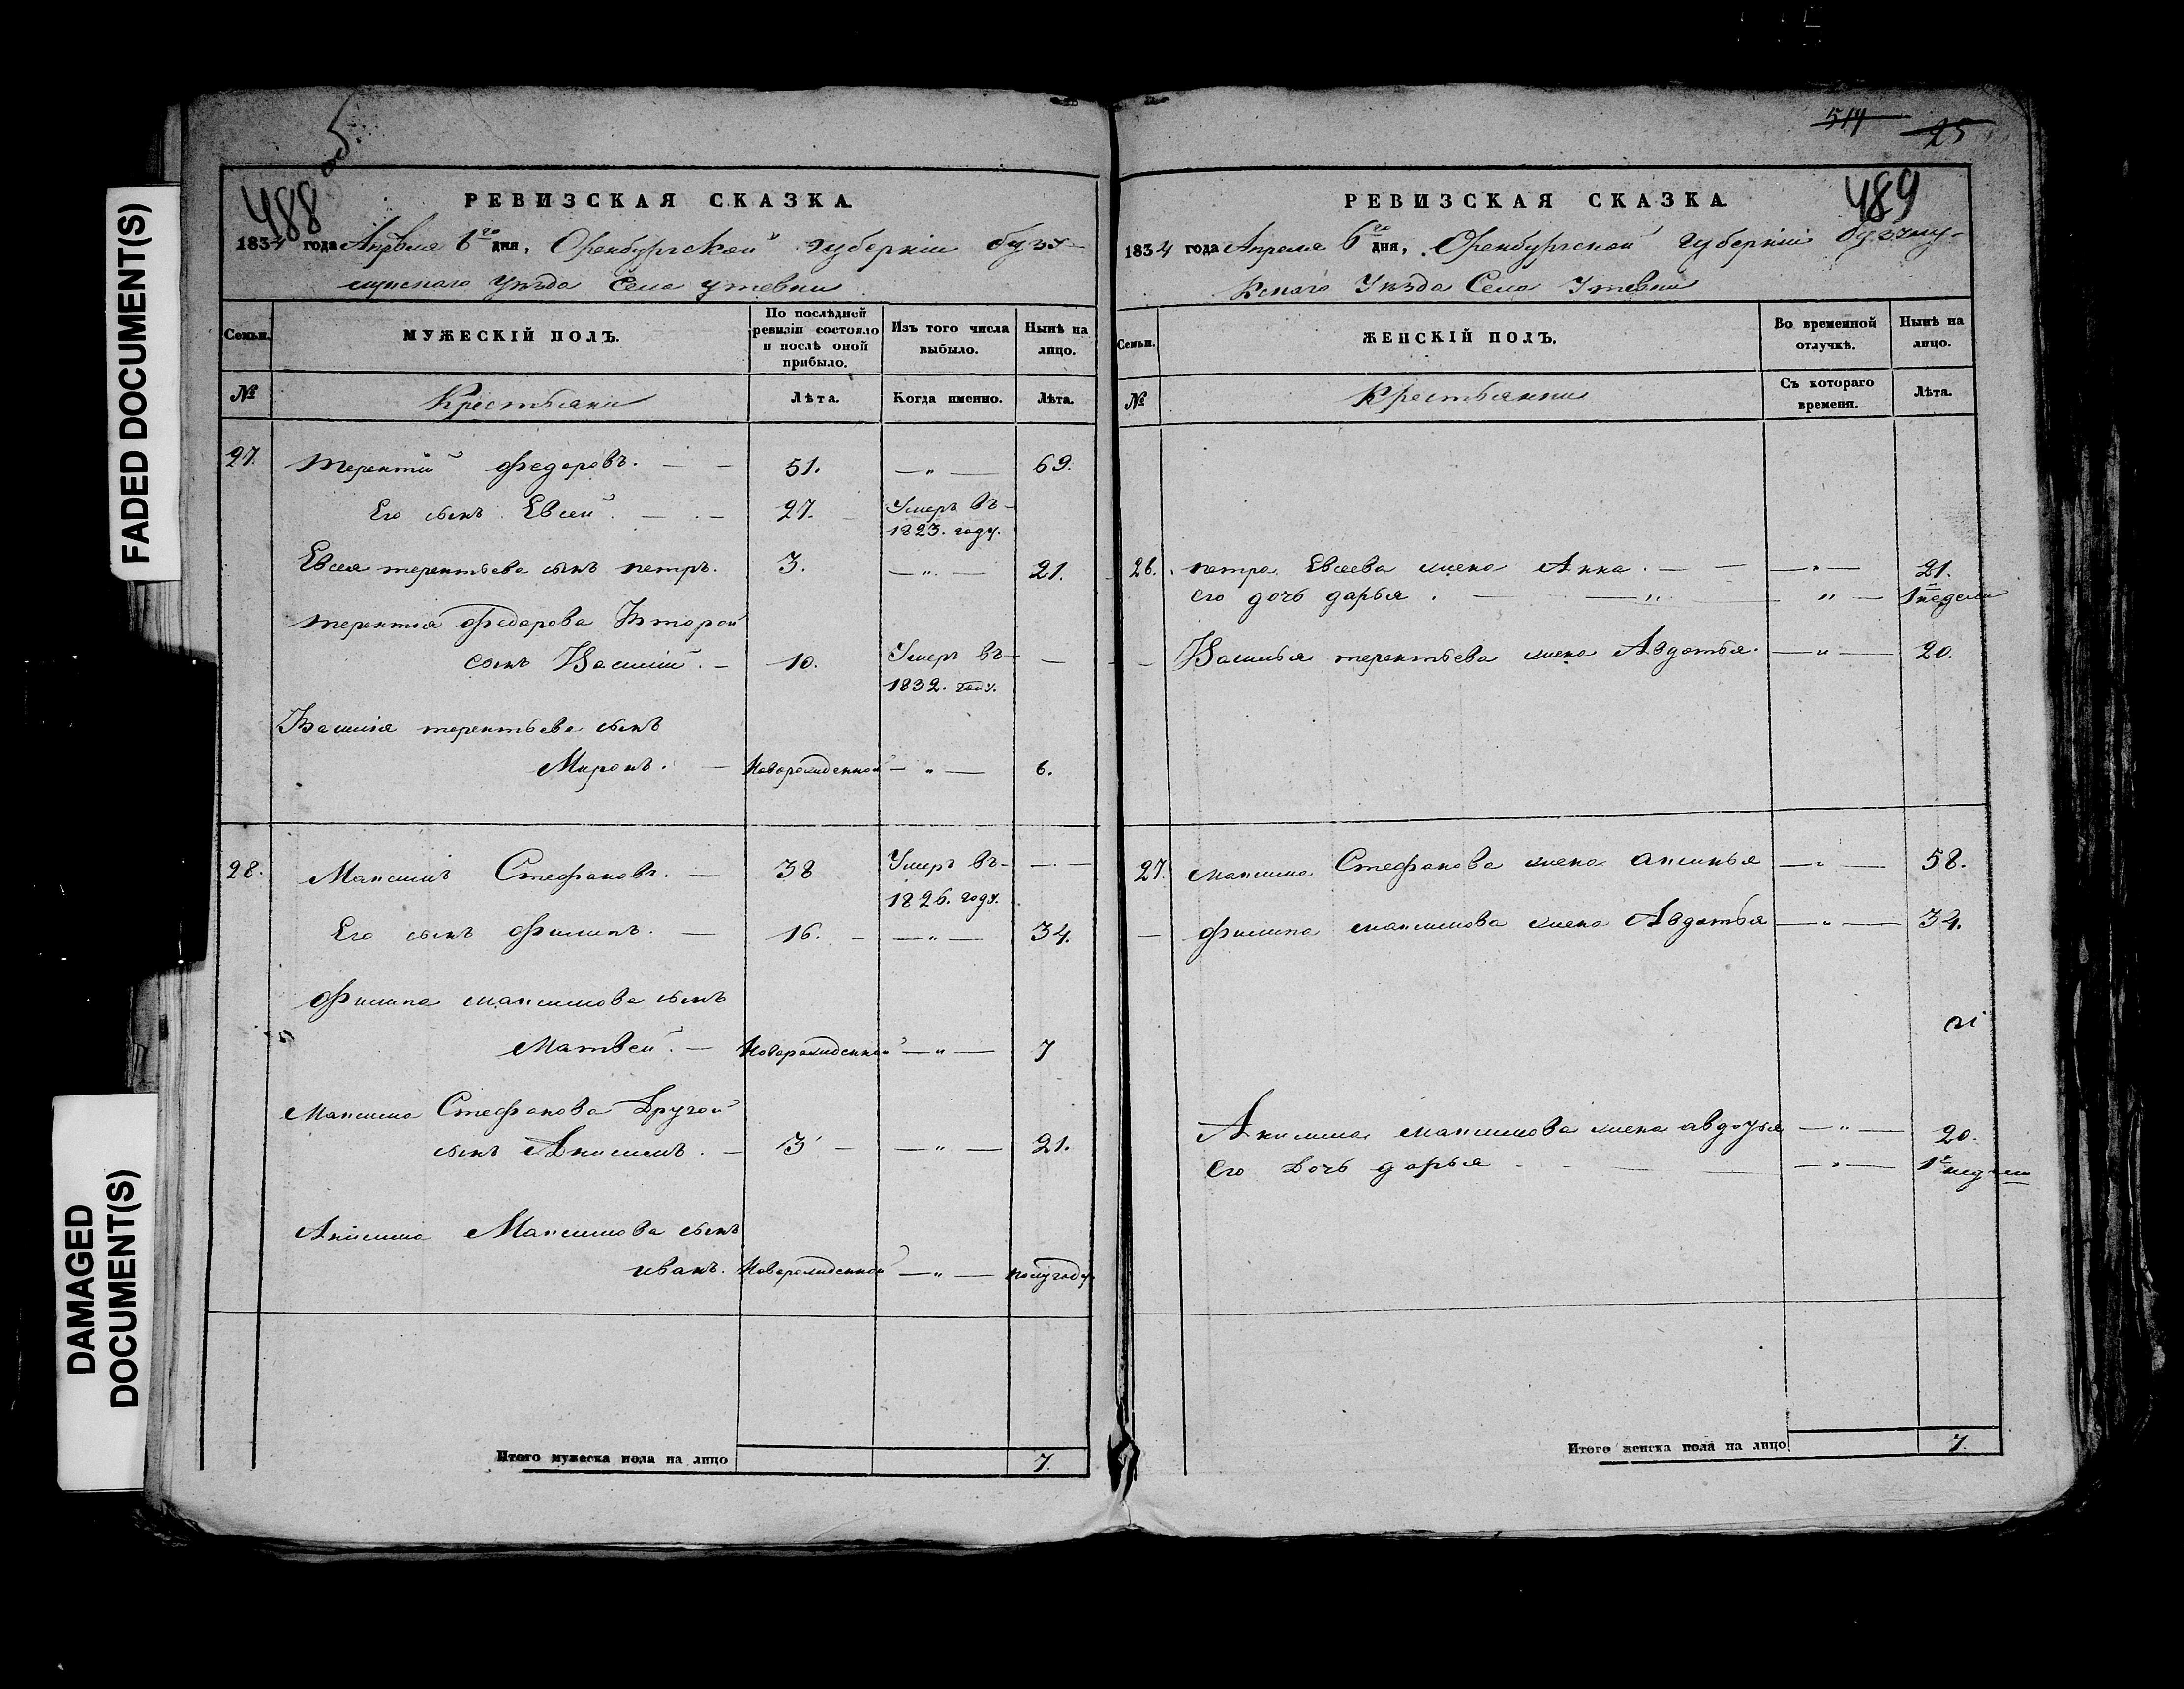 FADED DOCUMENT(S)
DAMAGED
DOCUMENT(S)
об
488
РЕВИЗСКАЯ СКАЗКА.
1834 года Апреля 6го дня, Оренбургской губерніи бузу-
лукскаго уезда села утевки
Семьи. МУЖЕСКІЙ ПОЛЪ. По послѣдней ревизіи состояло и послѣ оной прибыло. Изъ того числа выбыло. Нынѣ на лицо.
№ Крестьяни Лѣта. Когда именно. Лѣта.
27. терентій федоровъ. — — 51. — „ — 69.
Его сынъ Евсей. — — 27. Умеръ въ
1823. году.
Евсея терентьева сынъ петръ. 3. — „ — 21.
терентия федорова Второй
сынъ Василій. — 10. Умеръ въ —
1832. году.
Василія терентьева сынъ
Миронъ. — Новорожденной — „ — 6.
28. Максимъ Стефановъ. — 38 Умеръ въ — — —
1826. году.
Его сынъ филипъ. — 16. — — „ — 34.
филипа максимова сынъ
Матвей. — Новорожденной — „ — 7
Максима Стефанова Другой
сынъ Анисимъ. — 3 — — „ — 21.
Анисима Максимова сынъ
иванъ. Новорожденной — „ — полугоду
Итого мужеска пола на лицо 7.
514 25
489
РЕВИЗСКАЯ СКАЗКА.
1834 года Апреля 6го дня, Оренбургской губерніи бузулу-
кскаго Уезда Села Утевки
Семьи. ЖЕНСКІЙ ПОЛЪ. Во временной отлучкѣ. Нынѣ на лицо.
№ Крестьянки Съ котораго времени. Лѣта.
26. петра Евсеева жена Анна. — — — „ — 21.
его дочь дарья. — — „ — „ — 1 недели
— Василья терентьева жена Авдотья. — „ — 20.
27. максима Стефанова жена аксинья — „ — 58.
— филипа максимова жена Авдотья — „ — 34.
Анисима максимова жена авдотья — „ — 20.
Его Дочь дарья — — — „ — 1 недели
Итого женска пола на лицо 7.